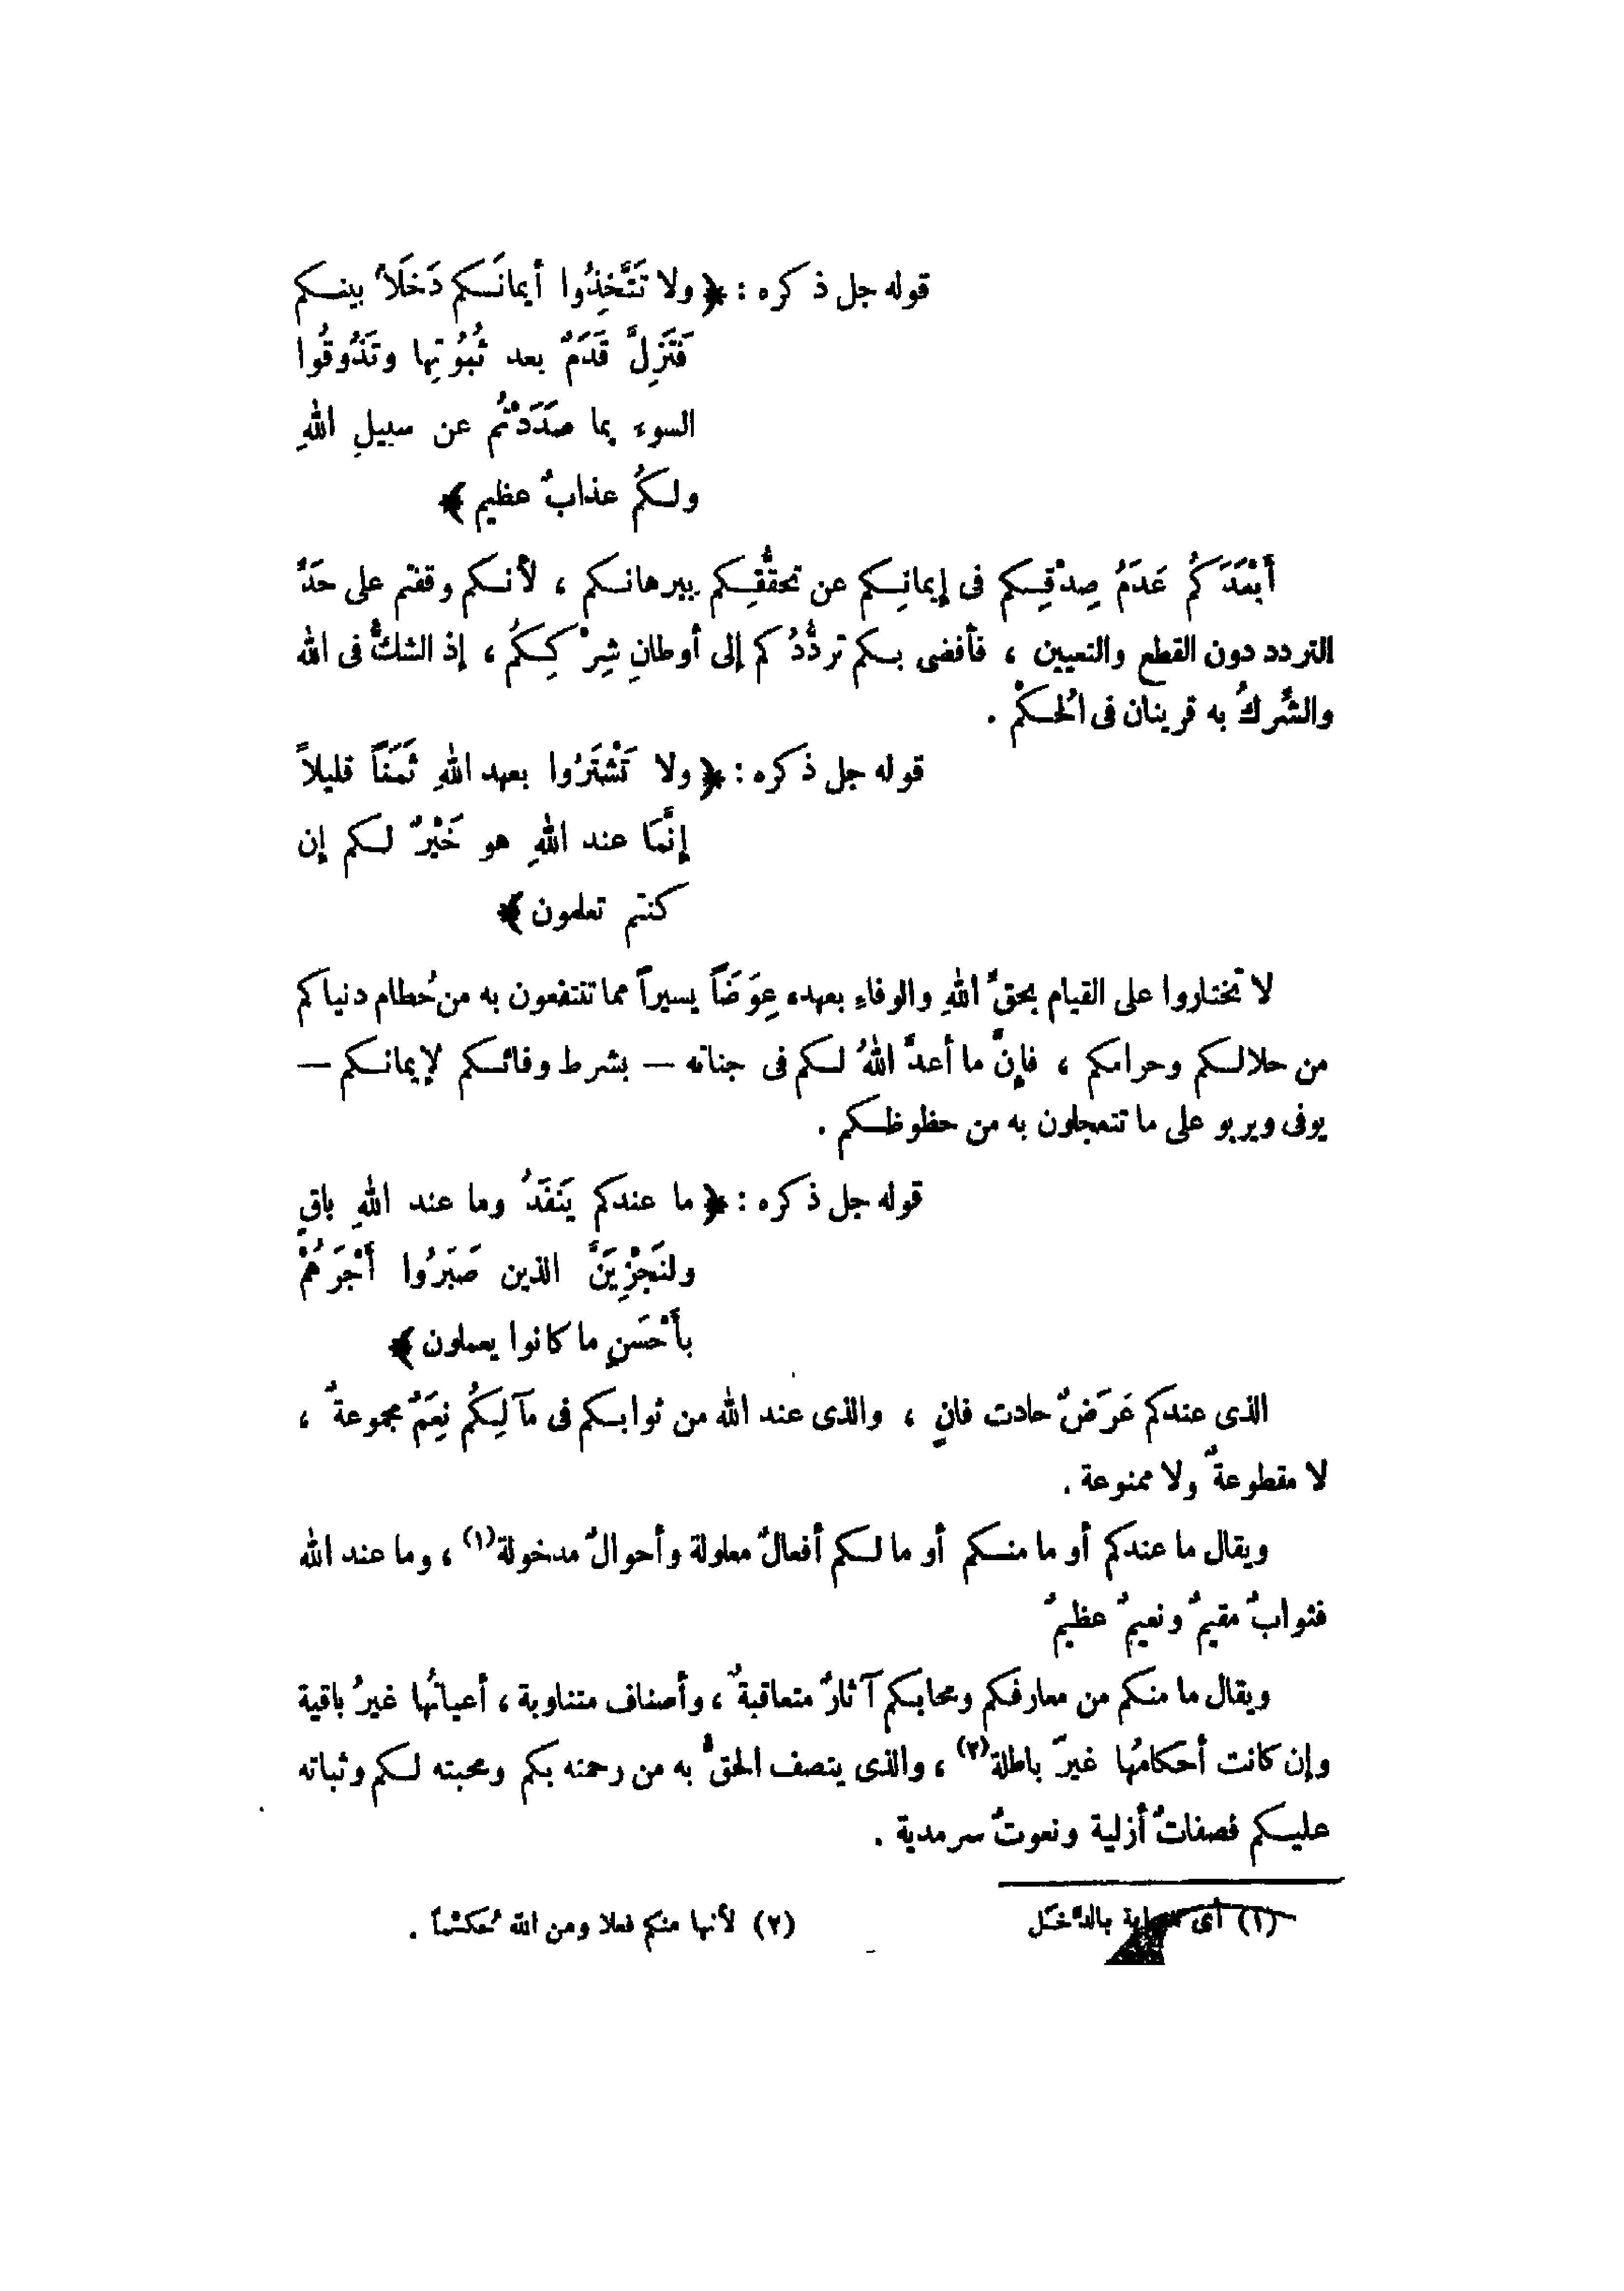 قوله جل ذكره : ﴿ ولا تَتَّخِذُوا أيمانَكم دَخَلاً بينكم
فَتَزِلَّ قَدَمٌ بعد ثُبُوتِها وتَذُوقُوا
السوء بما صَدَدْتُم عن سبيلِ اللهِ
ولكُم عذابٌ عظيم ﴾
أبْعَدَكُم عَدَمُ صِدْقِكم فى إيمانِكم عن تحقُّقِكم ببرهانكم ، لأنكم وقفتم على حَدِّ
التردد دون القطع والتعيين ، فأفضى بكم تردُّدُكم إلى أوطانِ شِرْكِكُم ، إذ الشكُّ فى الله
والشِّركُ به قرينان فى الحُكْم .
قوله جل ذكره : ﴿ ولا تَشْتَرُوا بعهد اللهِ ثَمَنَاً قليلاً
إنَّمَا عند اللهِ هو خَيْرٌ لكم إن
كنتم تعلمون ﴾
لا تختاروا على القيام بحقِّ اللهِ والوفاءِ بعهده عِوَضَاً يسيراً مما تنتفعون به من حُطام دنياكم
من حلالكم وحرامكم ، فإنَّ ما أعدَّ اللهُ لكم فى جناته – بشرط وفائكم لإيمانكم –
يوفى ويربو على ما تتعجلون به من حظوظكم .
قوله جل ذكره : ﴿ ما عندكم يَنفَدُ وما عند اللهِ باقٍ
ولنَجْزِيَنَّ الذين صَبَرُوا أَجْرَهُمْ
بأَحْسَنِ ما كانوا يعملون ﴾
الذى عندكم عَرَضٌ حادث فانٍ ، والذى عند الله من ثوابكم فى مآلِكُم نِعَمٌ مجموعةٌ ،
لا مقطوعةٌ ولا ممنوعة .
ويقال ما عندكم أو ما منكم أو ما لكم أفعالٌ معلولة وأحوالٌ مدخولة(١) ، وما عند الله
فثوابٌ مقيمٌ ونعيمٌ عظيمٌ
ويقال ما منكم من معارفكم ومحابكم آثارٌ متعاقبةٌ ، وأصناف متناوبة ، أعيانُها غيرُ باقية
وإن كانت أحكامُها غيرَ باطلة(٢) ، والذى يتصف الحقُّ به من رحمته بكم ومحبته لكم وثباته
عليكم فصفاتٌ أزلية ونعوتٌ سرمدية .
(١) أى بالدَّخَل
(٢) لأنها منكم فعلا ومن الله حُكْماً .